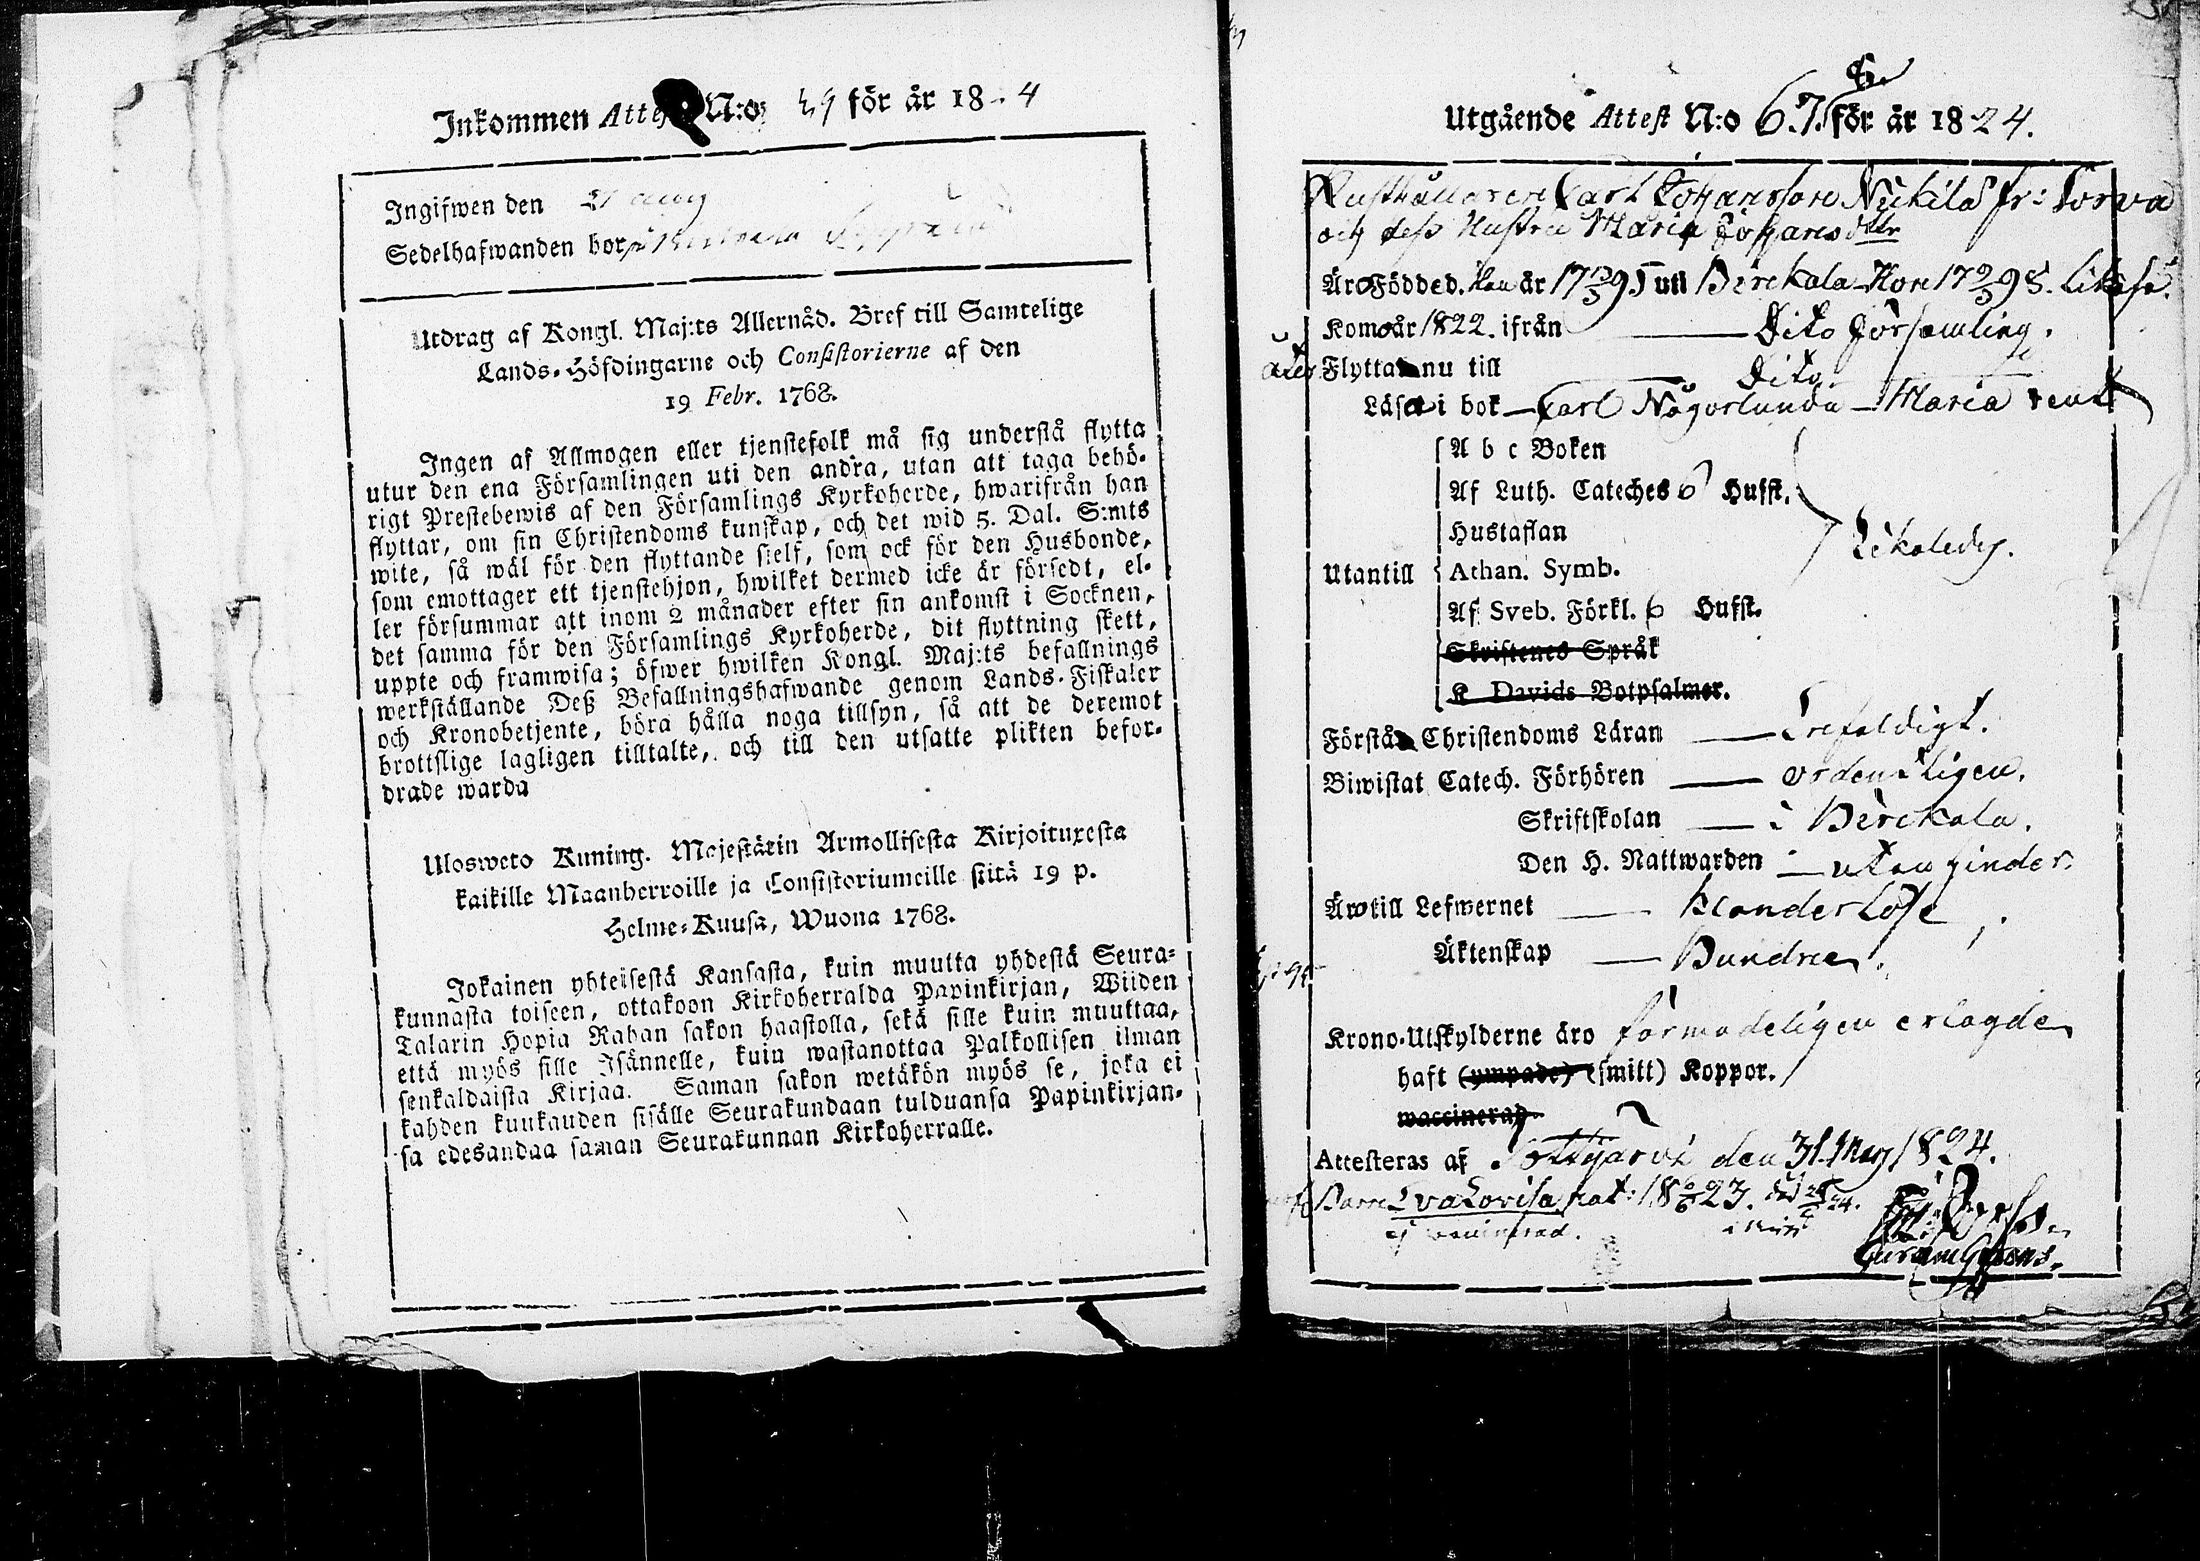 Inkommen Attest N:o 49 för år 18-4
Ingifwen den 21 aug
Sedelhafwanden bor
Utdrag af Kongl. Maj:ts Allernåd. Bref till Samtelige
Lands-Höfdingarne och Consistorierne af den
19 Febr. 1768.
Ingen af Allmogen eller tjenstefolk må sig understå flytta
utur den ena Församlingen uti den andra, utan att taga behö-
rigt Prestebewis af den Församlings Kyrkoherde, hwarifrån han
flyttar, om sin Christendoms kunskap, och det wid 5. Dal. S:mts
wite, så wäl för den flyttande sielf, som ock för den Husbonde,
som emottager ett tjenstehjon, hwilket dermed icke är försedt, el-
ler försummar att inom 2 månader efter sin ankomst i Socknen,
det samma för den Församlings Kyrkoherde, dit flyttning skett,
uppte och framwisa; öfwer hwilken Kongl. Maj:ts befallnings
werkställande Deß Befallningshafwande genom Lands-Fiskaler
och Kronobetjente, böra hålla noga tillsyn, så att de deremot
brottslige lagligen tilltalte, och till den utsatte plikten befor-
drade warda
Ulosweto Kuning. Majestätin Armollisesta Kirjoituxesta
kaikille Maanherroille ja Consistoriumeille siitä 19 p.
Helme-Kuusa, Wuona 1768.
Jokainen yhteisestä Kansasta, kuin muutta yhdestä Seura-
kunnasta toiseen, ottakoon Kirkoherralda Papinkirjan, Wiiden
Talarin Hopia Rahan sakon haastolla, sekä sille kuin muuttaa,
että myös sille Isännelle, kuin wastanottaa Palkollisen ilman
senkaldaista Kirjaa. Saman sakon wetäkön myös se, joka ei
kahden kuukauden sisälle Seurakundaan tulduansa Papinkirjan-
sa edesandaa saman Seurakunnan Kirkoherralle.
Utgående Attest N:o 67. för år 1824.
Rusthållaren Carl Johansson Nickilä fr: Sorva
och dess Hustru Maria Johansdttr
Äro Födde d. Han år 17 95 uti Birckala Hon 17 98. likaså.
Komo år 1822. ifrån — Dito församling.
Flytta nu till — Dito
Läsa i bok — Carl Någorlunda — Maria rent
A b c Boken
Af Luth. Cateches 6 Hufst.
Hustaflan
Likaledes.
Utantill Athan. Symb.
Af Sveb. Förkl. 6 Hufst.
Skriftenes Språk
K Davids Botpsalmer.
Förstå Christendoms Läran — Enfaldigt.
Biwistat Catech. Förhören — ordentligen.
Skriftskolan — i Birckala.
Den H. Nattwarden — utan hinder.
Äro till Lefwernet — Klanderlöse
Äktenskap — Bundne.
Krono-Utskylderne äro förmodeligen erlagde
haft (ympade) (smitt) Koppor.
waccinerad.
Attesteras af Tottijärvi den 31. Maij 1824.
Barn Eva Lovisa nat: 18 23.
ej vaccinerad.